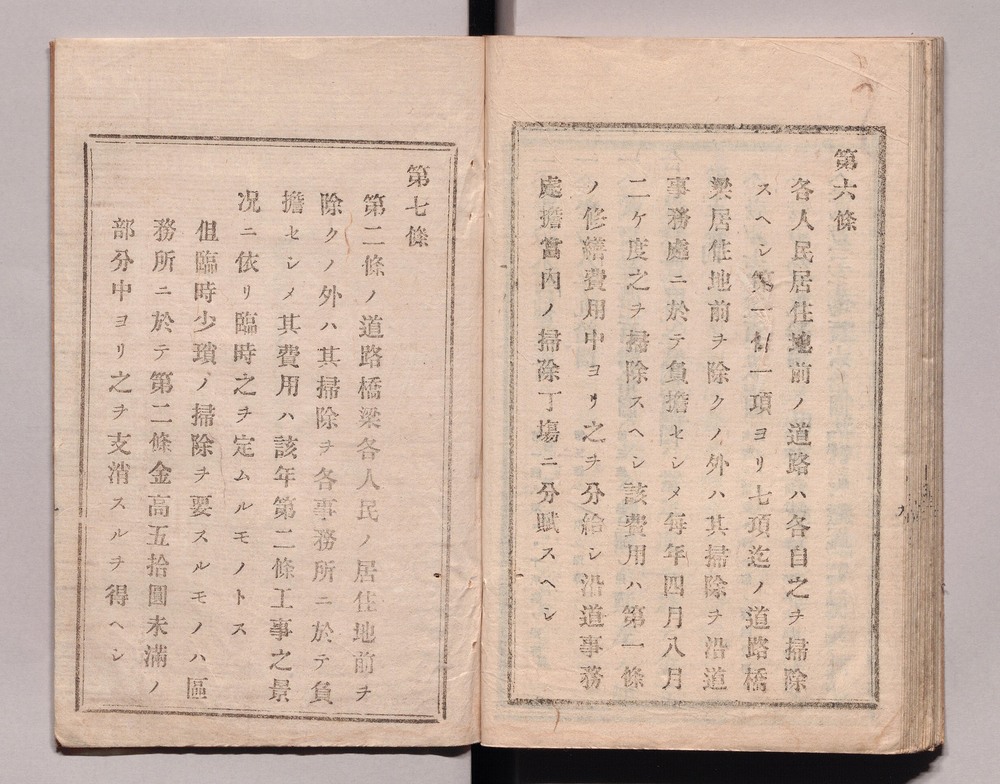 第六條
各人民居住地前ノ道路ハ各自之ヲ掃除
スヘシ第一條一項ヨリ七項迄ノ道路橋
梁居住地前ヲ除クノ外ハ其掃除ヲ沿道
事務處ニ於テ負擔セシメ每年四月八月
二ケ度之ヲ掃除スヘシ該費用ハ第一條
ノ修繕費用中ヨリ之ヲ分給シ沿道事務
處擔當內ノ掃除丁塲ニ分賦スヘシ
第七條
第二條ノ道路橋梁各人民ノ居住地前ヲ
除クノ外ハ其掃除ヲ各事務所ニ於テ負
擔セシメ其費用ハ該年第二條工事之景
况ニ依リ臨時之ヲ定ムルモノトス
但臨時少瑣ノ掃除ヲ要スルモノハ區
務所ニ於テ第二條金高五拾圓未滿ノ
部分中ヨリ之ヲ支消スルヲ得ヘシ